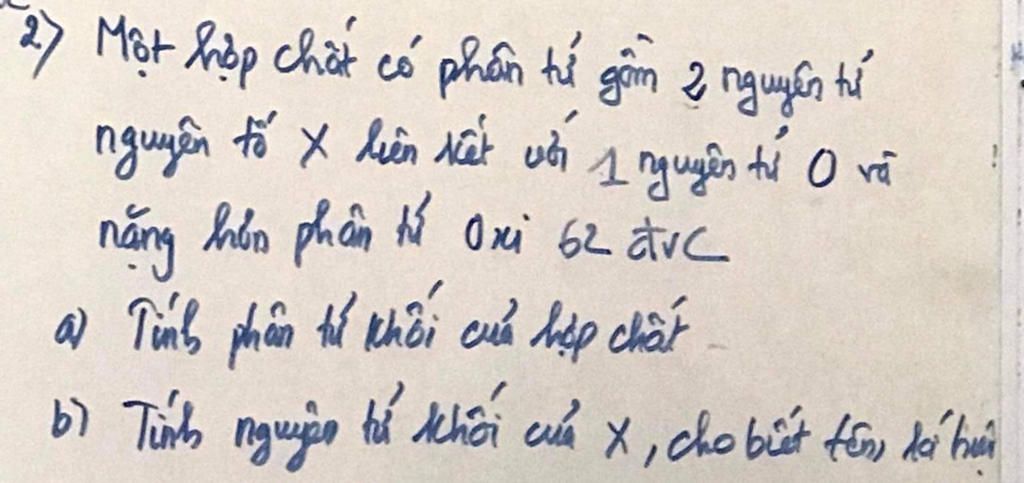 2) Một hợp chất có phân tử gồm 2 nguyên tử
nguyên tố X liên kết với 1 nguyên tử O và
nặng hơn phân tử Oxi 62 đvC
a) Tính phân tử khối của hợp chất
b) Tính nguyên tử khối của X, cho biết tên, kí hiệu